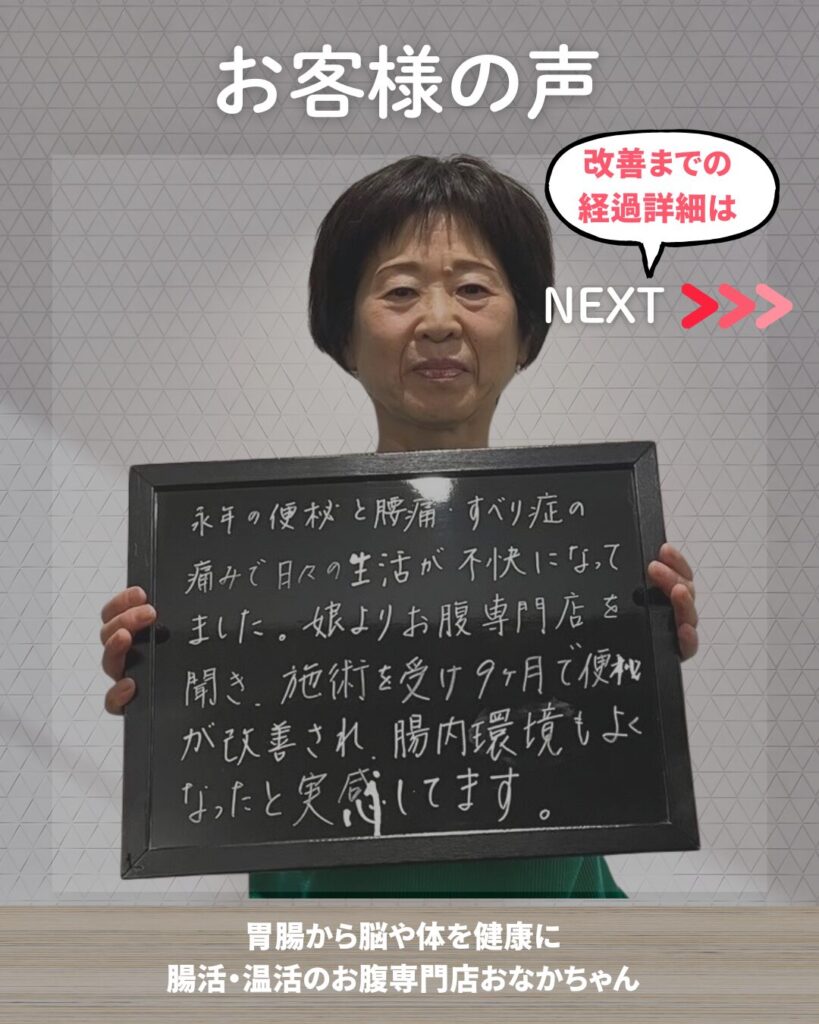 お客様の声
改善までの
経過詳細は
NEXT
永年の便秘と腰痛・すべり症の
痛みで日々の生活が不快になって
ました。娘よりお腹専門店を
聞き、施術を受け9ヶ月で便秘
が改善され、腸内環境もよく
なったと実感してます。
胃腸から脳や体を健康に
腸活・温活のお腹専門店おなかちゃん